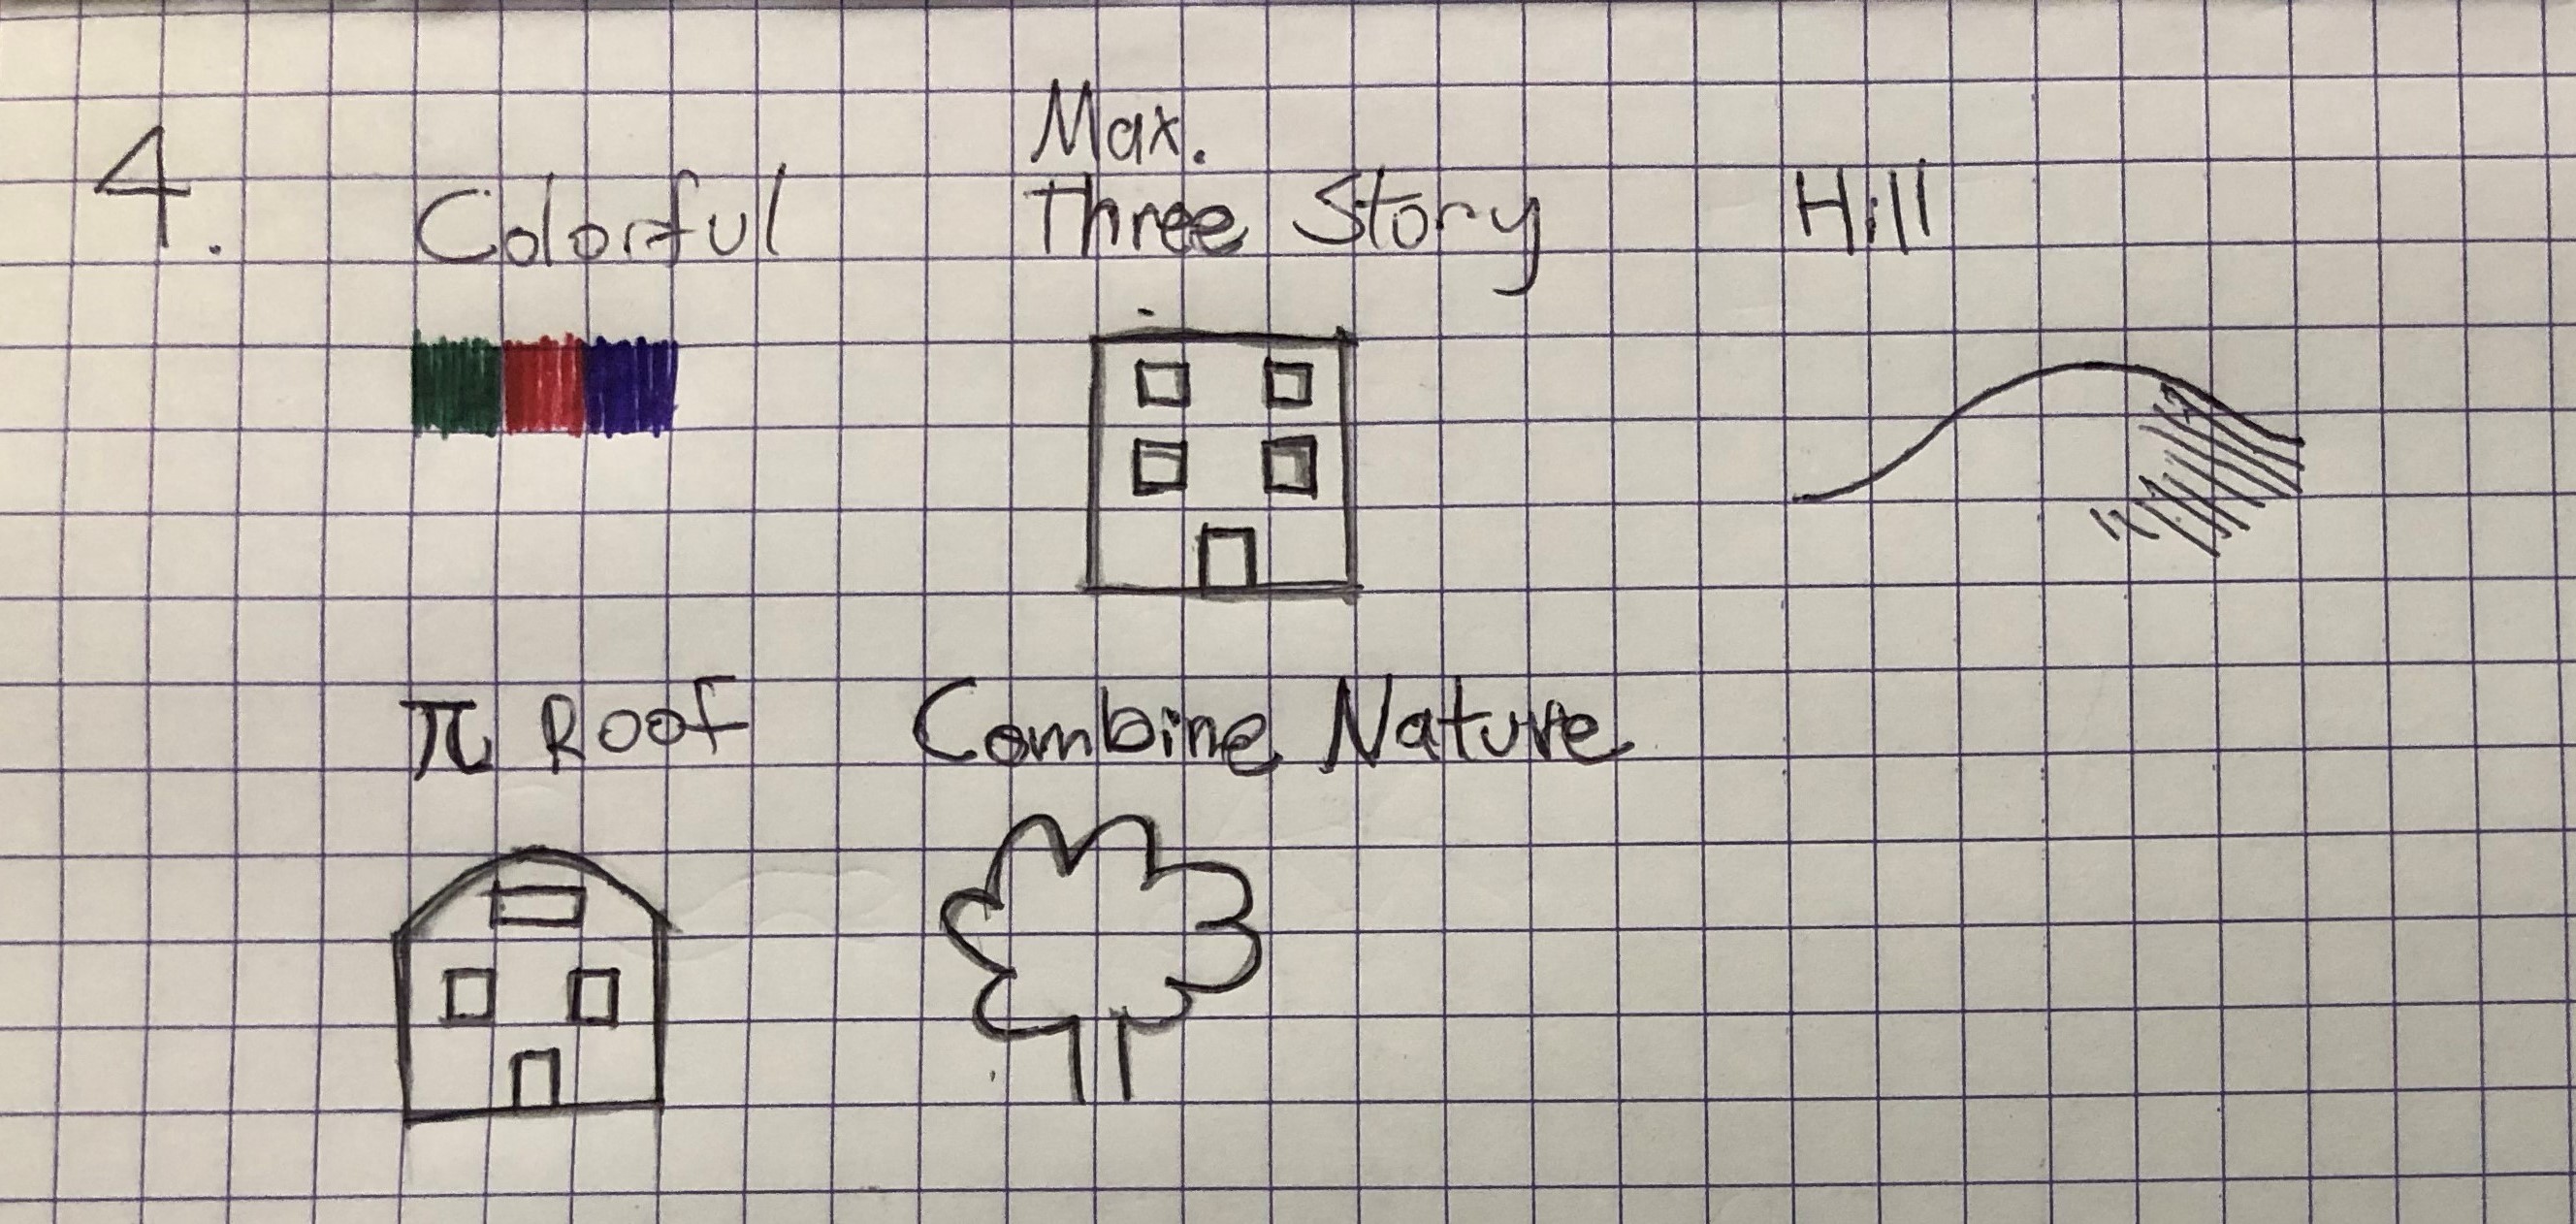 4.
Colorful
Max.
Three Story
Hill
π Roof
Combine Nature